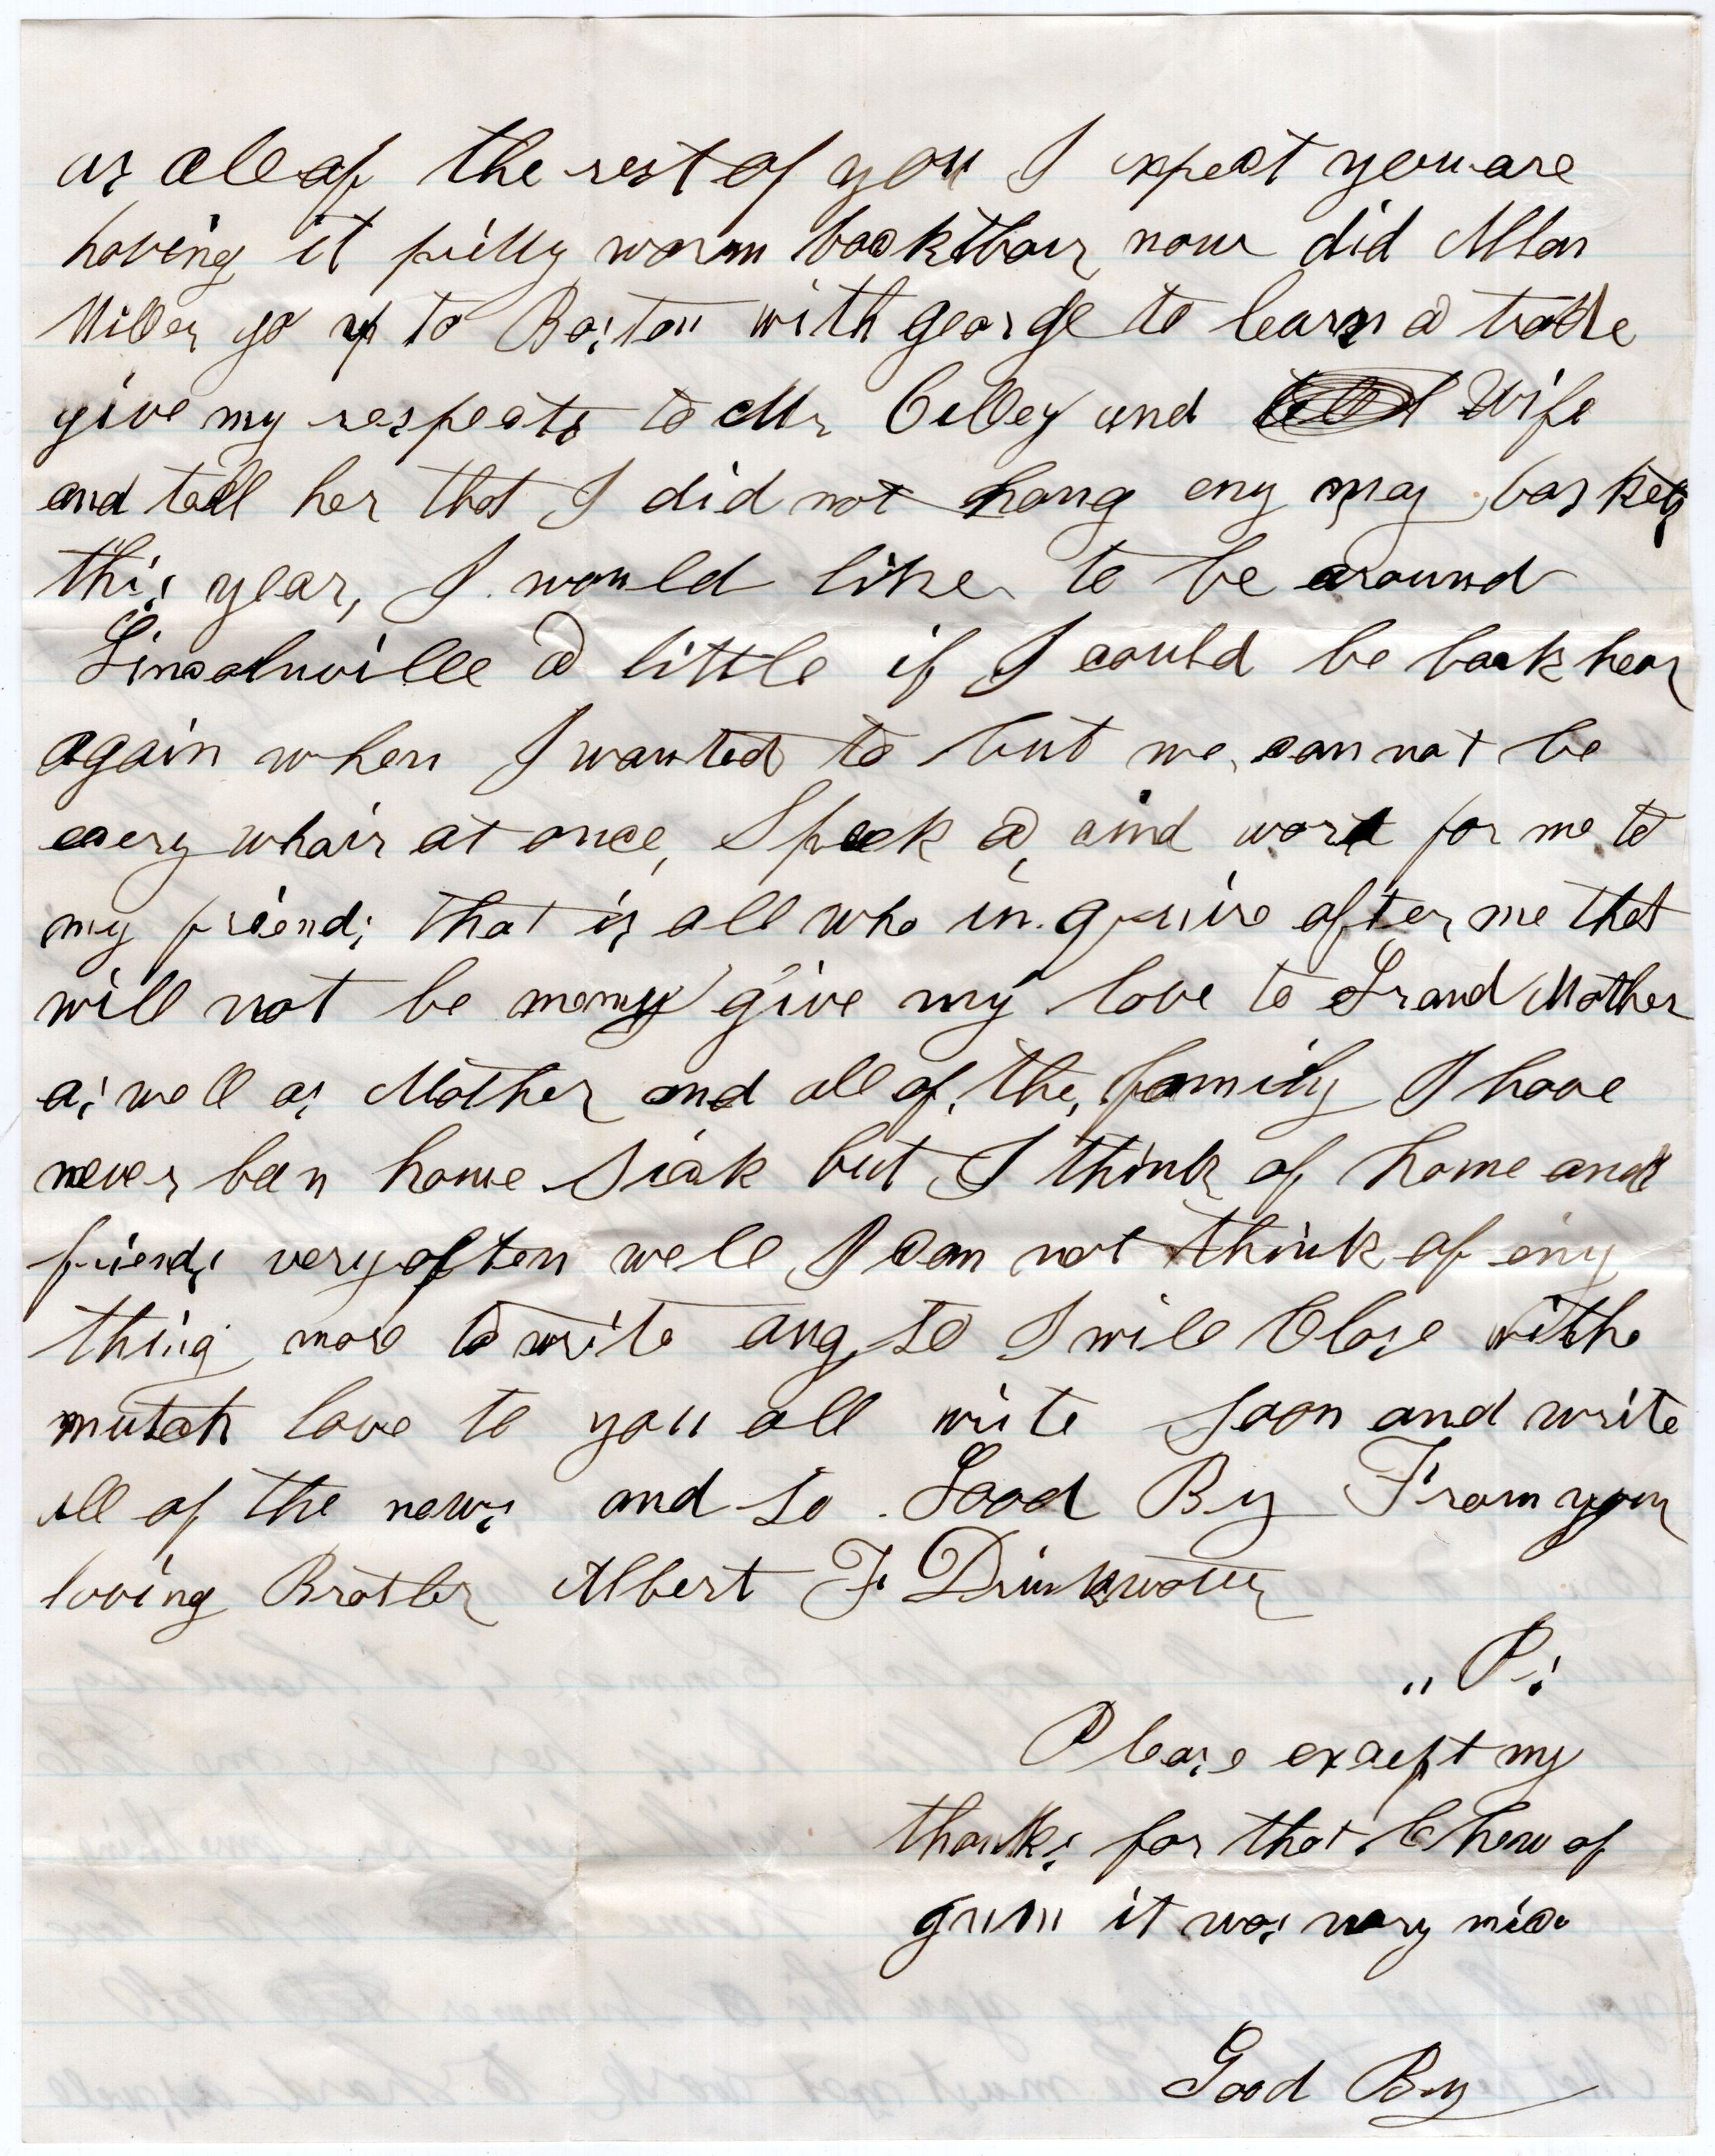 as all of the rest of you I expect you are
having it pritty warm back thair now did Allan
Miller go up to Boston with george to learn a trade
give my respects to Mr Cilley and Wife
and tell her that I did not hang eny may baskets
this year, I would like to be around
Lincolnville a little if I could be back hear
again when I wanted to but we can not be
every whair at once, Speek a cind word for me to
my friends that is all who in.quire after me that
will not be meny give my love to Grand Mother
as well as Mother and all of the family I have
never ben home Sick but I think of home and
friends very often well I can not think of eny
thing more to write and so I will Close withe
mutch love to you all write soon and write
all of the news and so Good By From your
loving Brother Albert F. Drinkwater
"P.s
Please except my
thanks for that Chew of
gum it was very nice
Good By